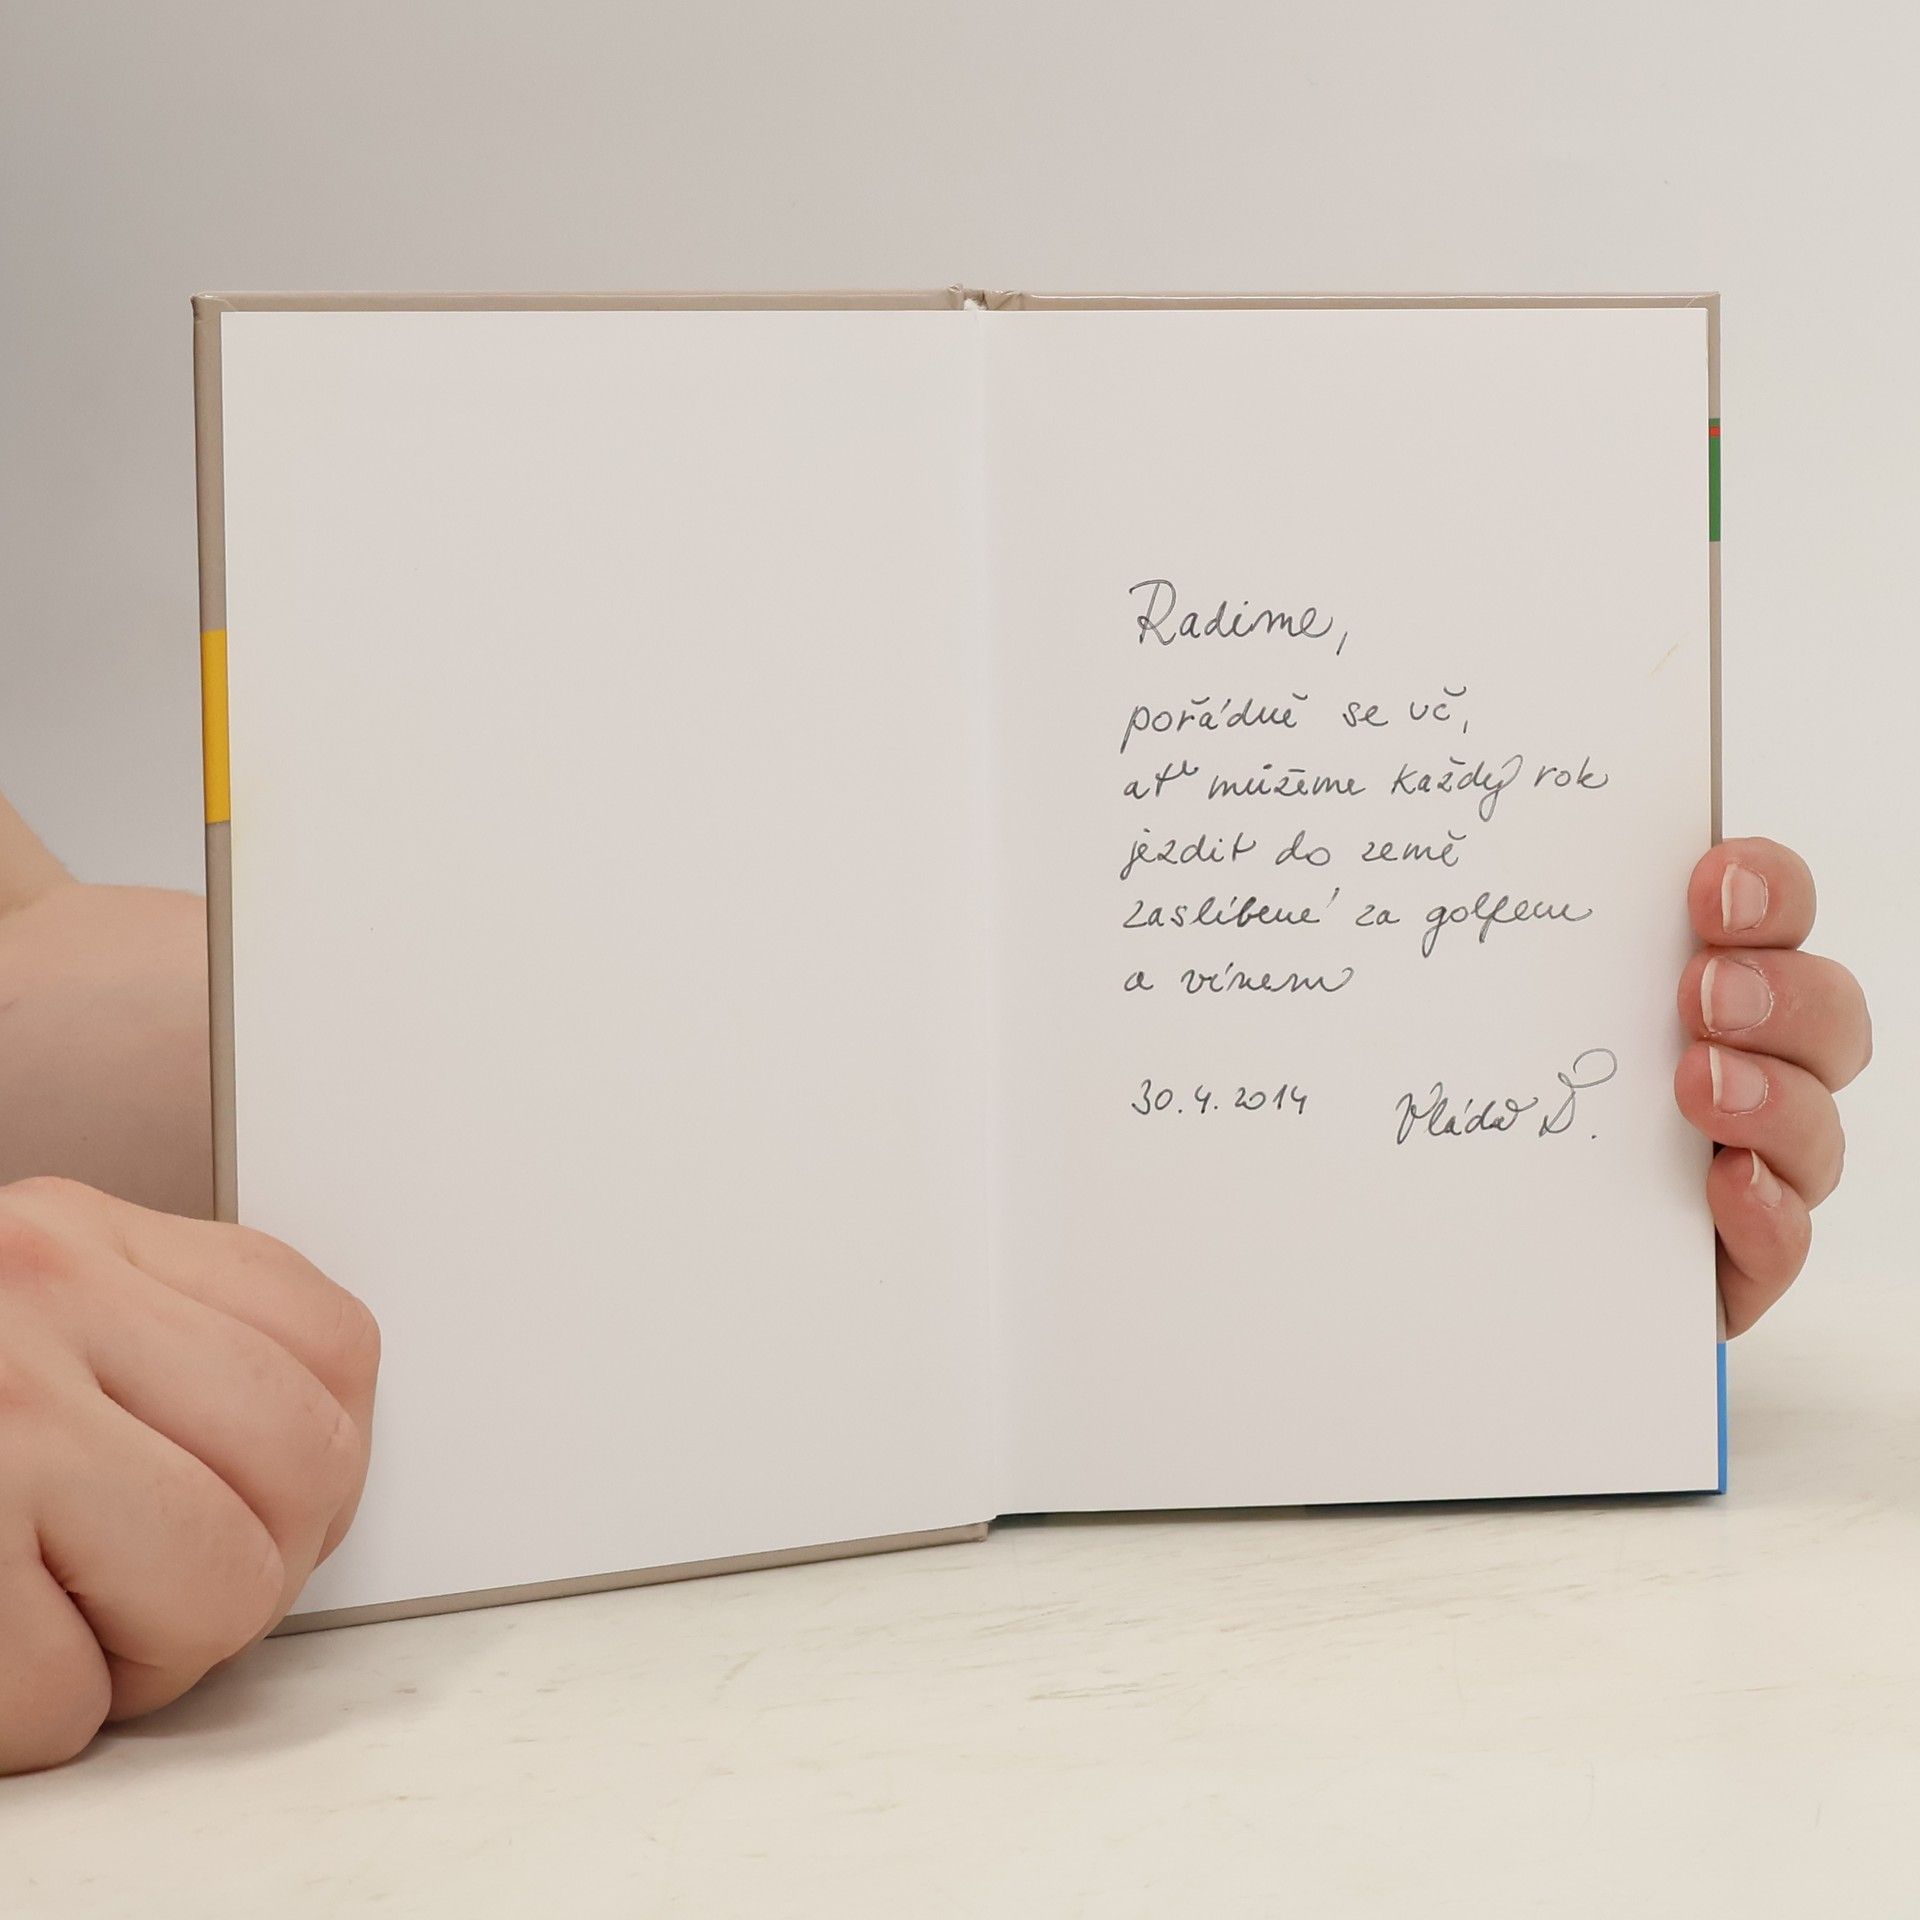 Radime,
pořádně se uč,
ať můžeme každý rok
jezdit do země
zaslíbené za golfem
a vínem
30.4.2014 Vláďa Š.